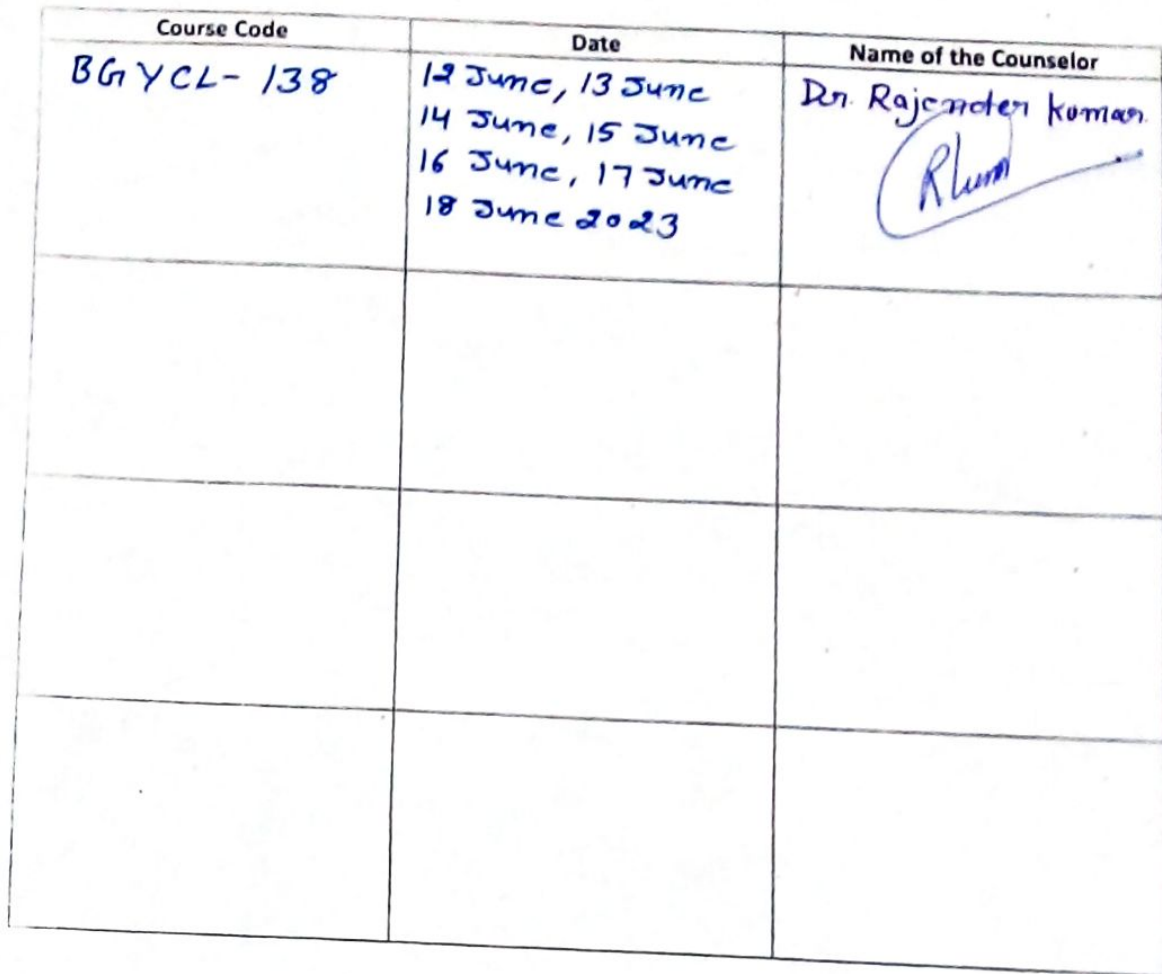 Course Code Date Name of the Counselor
BGYCL- 138
12 June, 13 June
14 June, 15 June
16 June, 17 June
18 June 2023
Dr. Rajender kumar